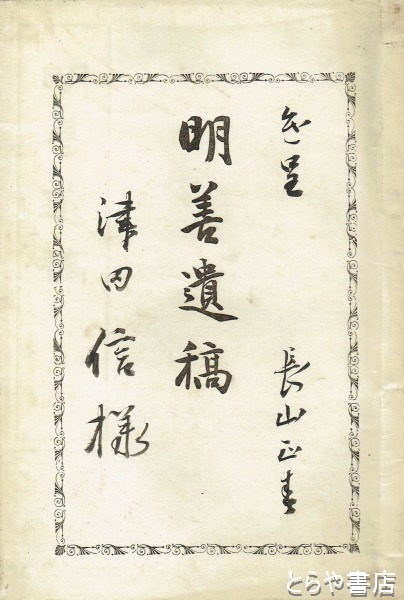 呈
長山正
明善遺稿
津田信様
とらや書店